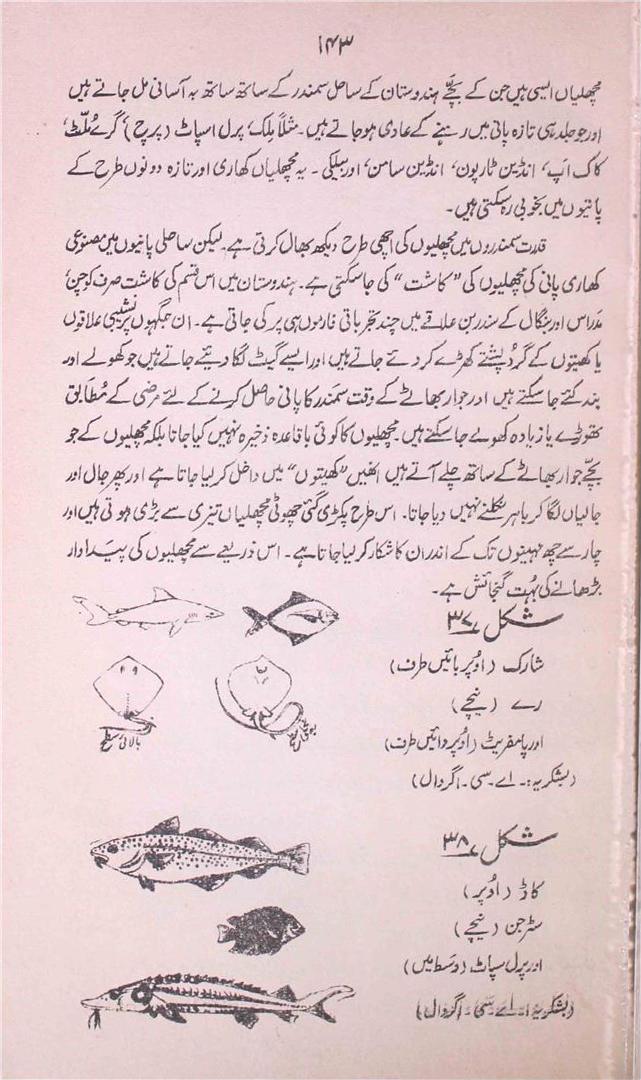 ۱۴۳
مچھلیاں ایسی ہیں جن کے بچّے ہندوستان کے ساحل سمندر کے ساتھ ساتھ بہ آسانی مل جاتے ہیں
اور جو جلد ہی تازہ پانی میں رہنے کے عادی ہو جاتے ہیں۔ مثلاً مِلک، پرل اسپاٹ (پرچ)، گرے مُلّٹ،
کاک اَپ، انڈین ٹارپون، انڈین سامن، اور بیلکی۔ یہ مچھلیاں کھاری اور تازہ دونوں طرح کے
پانیوں میں بخوبی رہ سکتی ہیں۔
قدرت سمندروں میں مچھلیوں کی اچھی طرح دیکھ بھال کرتی ہے۔ لیکن ساحلی پانیوں میں مصنوعی
کھاری پانی کی مچھلیوں کی “کاشت” کی جا سکتی ہے۔ ہندوستان میں اس قسم کی کاشت صرف کوچن،
مدراس اور بنگال کے سندر بن علاقے میں چند تجرباتی فارموں ہی پر کی جاتی ہے۔ ان جگہوں پر نشیبی علاقوں
یا کھیتوں کے گرد پشتے کھڑے کر دئے جاتے ہیں اور ایسے گیٹ لگا دیئے جاتے ہیں جو کھولے اور
بند کئے جا سکتے ہیں اور جوار بھاٹے کے وقت سمندر کا پانی حاصل کرنے کے لئے مرضی کے مُطابق
تھوڑے یا زیادہ کھولے جا سکتے ہیں۔ مچھلیوں کا کوئی باقاعدہ ذخیرہ نہیں کیا جاتا بلکہ مچھلیوں کے جو
بچّے جوار بھاٹے کے ساتھ چلے آتے ہیں انھیں “کھیتوں” میں داخل کر لیا جاتا ہے اور پھر جال اور
جالیاں لگا کر باہر نکلنے نہیں دیا جاتا۔ اس طرح پکڑی گئی چھوٹی مچھلیاں تیزی سے بڑی ہوتی ہیں اور
چار سے چھ مہینوں تک کے اندر ان کا شکار کر لیا جاتا ہے۔ اس ذریعے سے مچھلیوں کی پیداوار
بڑھانے کی بہت گنجائش ہے۔
شکل ۳۷
شارک (اوُپر بائیں طرف)
رے (نیچے)
اور پامفریٹ (اوُپر دائیں طرف)
(بشکریہ:۔ اے۔ سی۔ اگروال)
بالائی سطح
سطح
شکل ۳۸
کاڈ (اوُپر)
سٹرجن (نیچے)
اور پرل سپاٹ (وسط میں)
(بشکریہ:۔ اے۔ سی۔ اگروال)